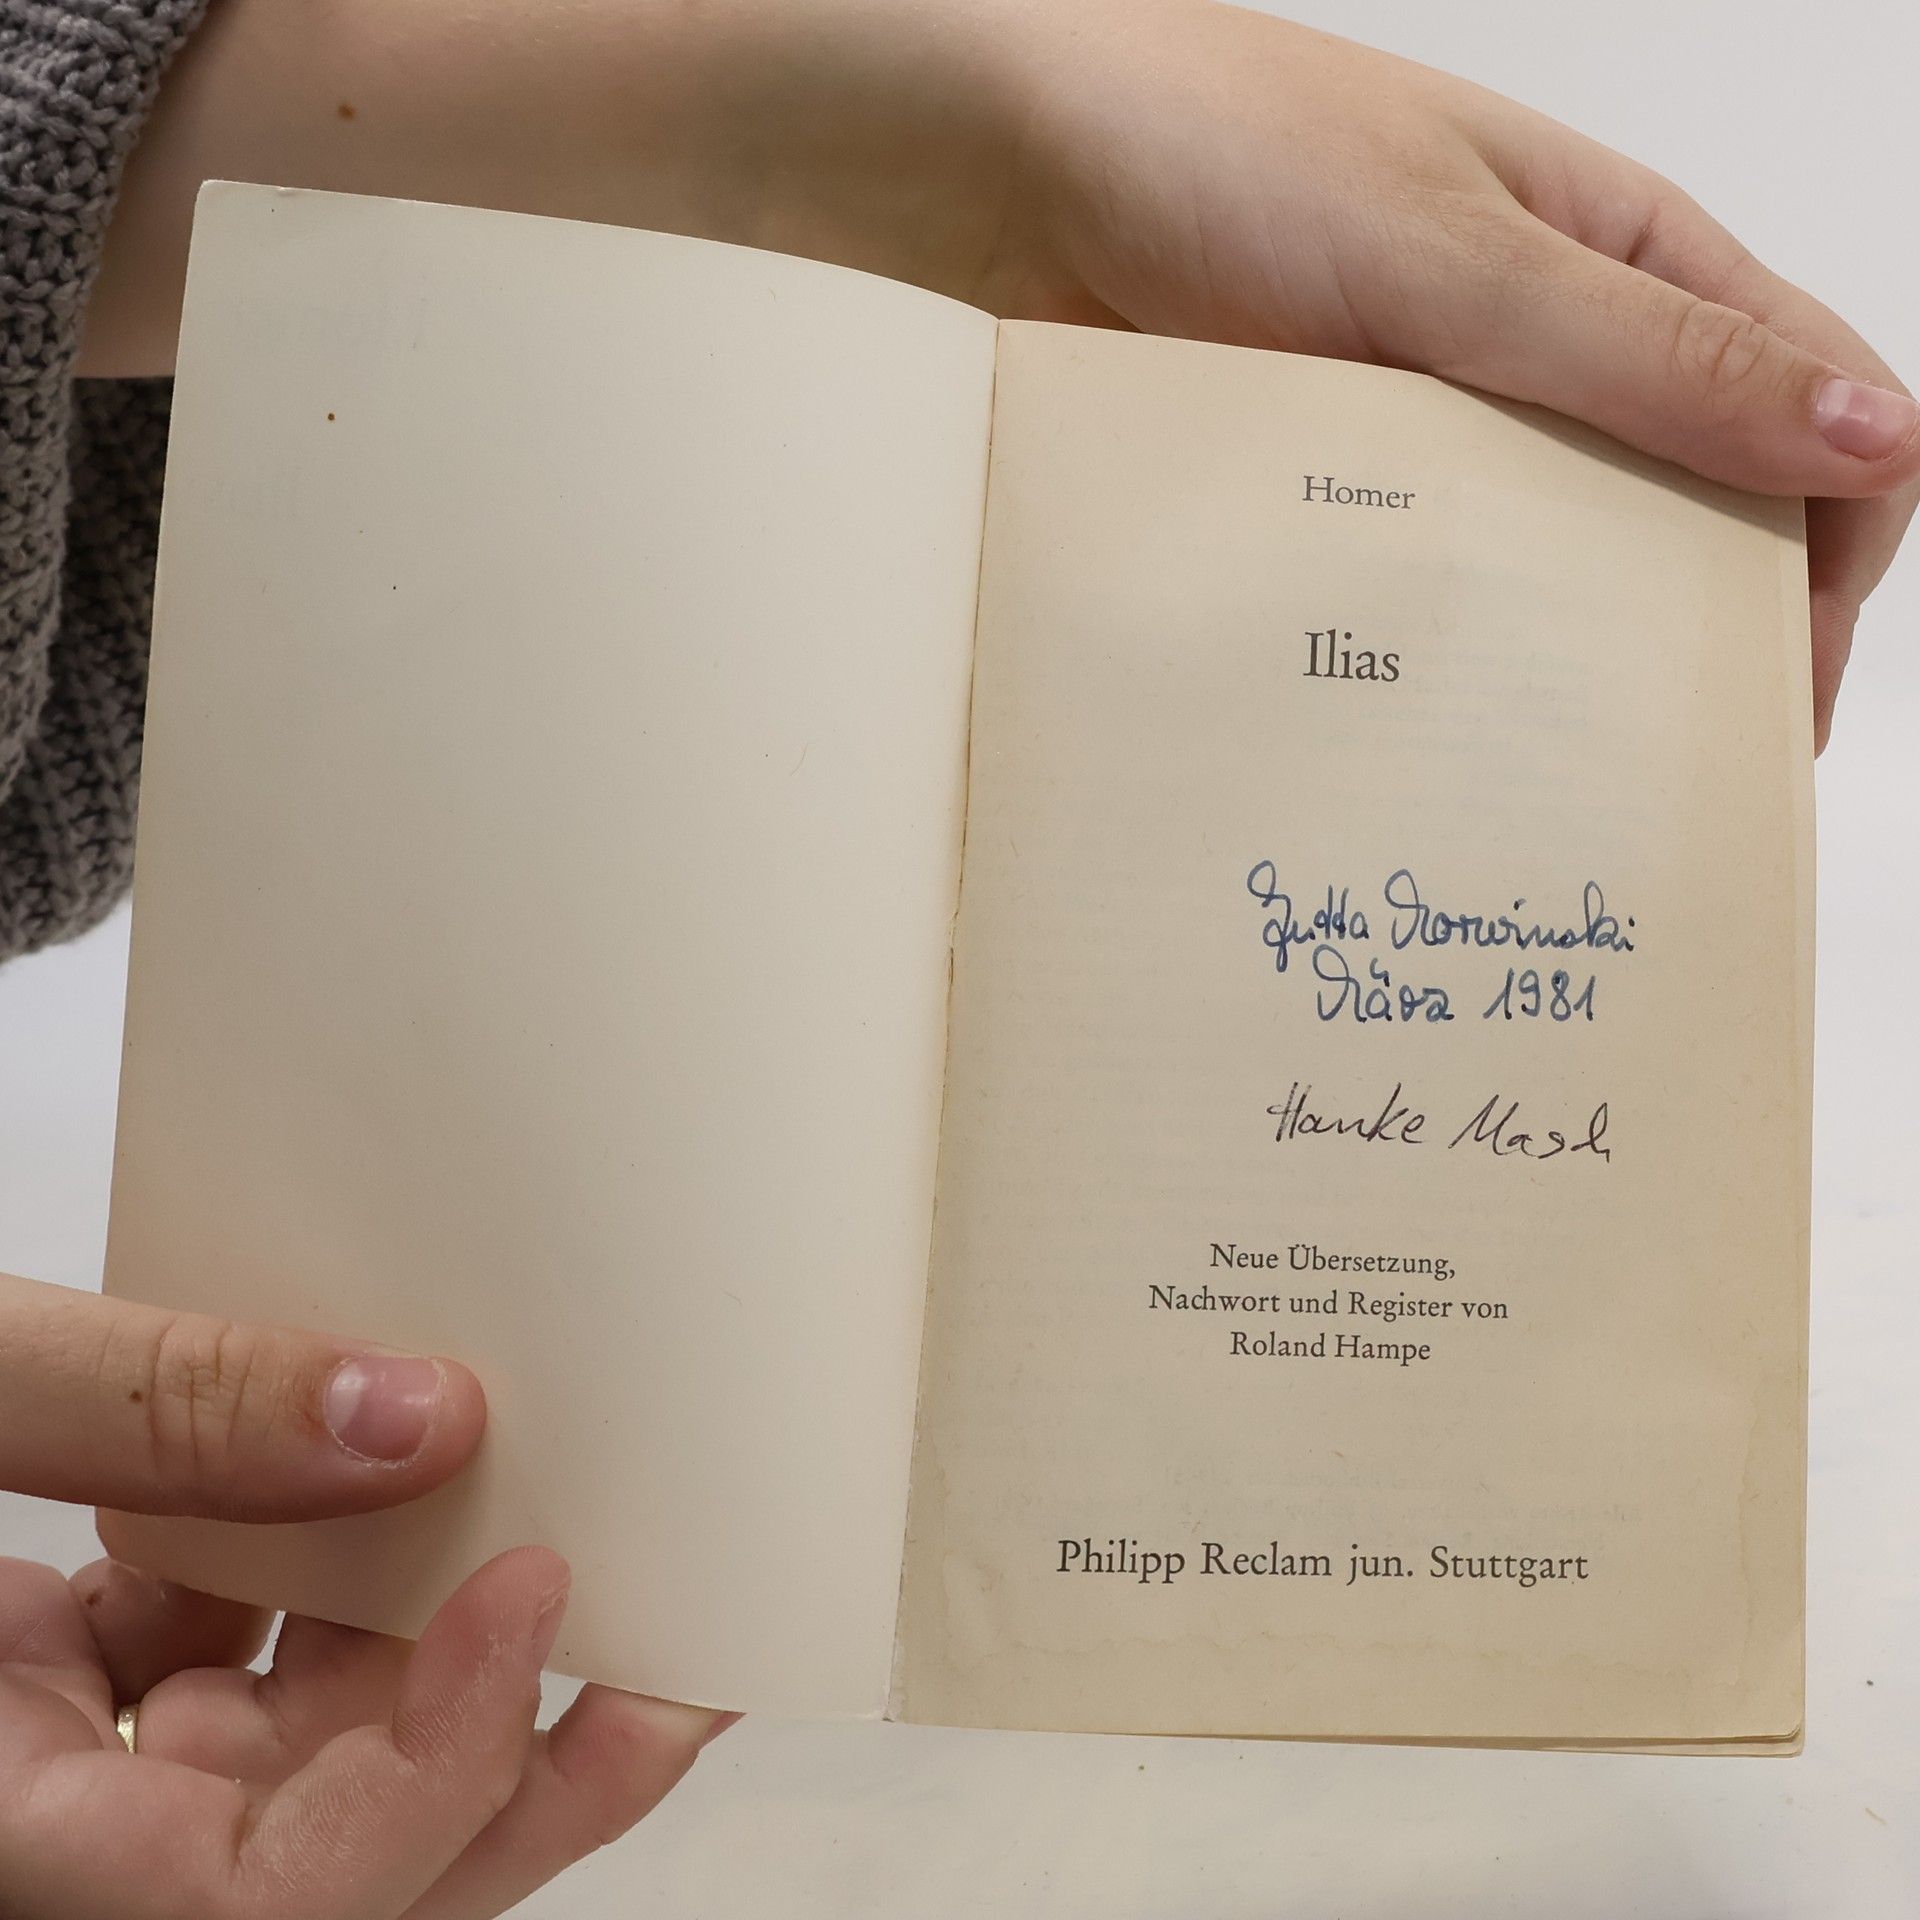 Homer
Ilias
Jutta Morwinski
März 1981
Neue Übersetzung,
Nachwort und Register von
Roland Hampe
Philipp Reclam jun. Stuttgart